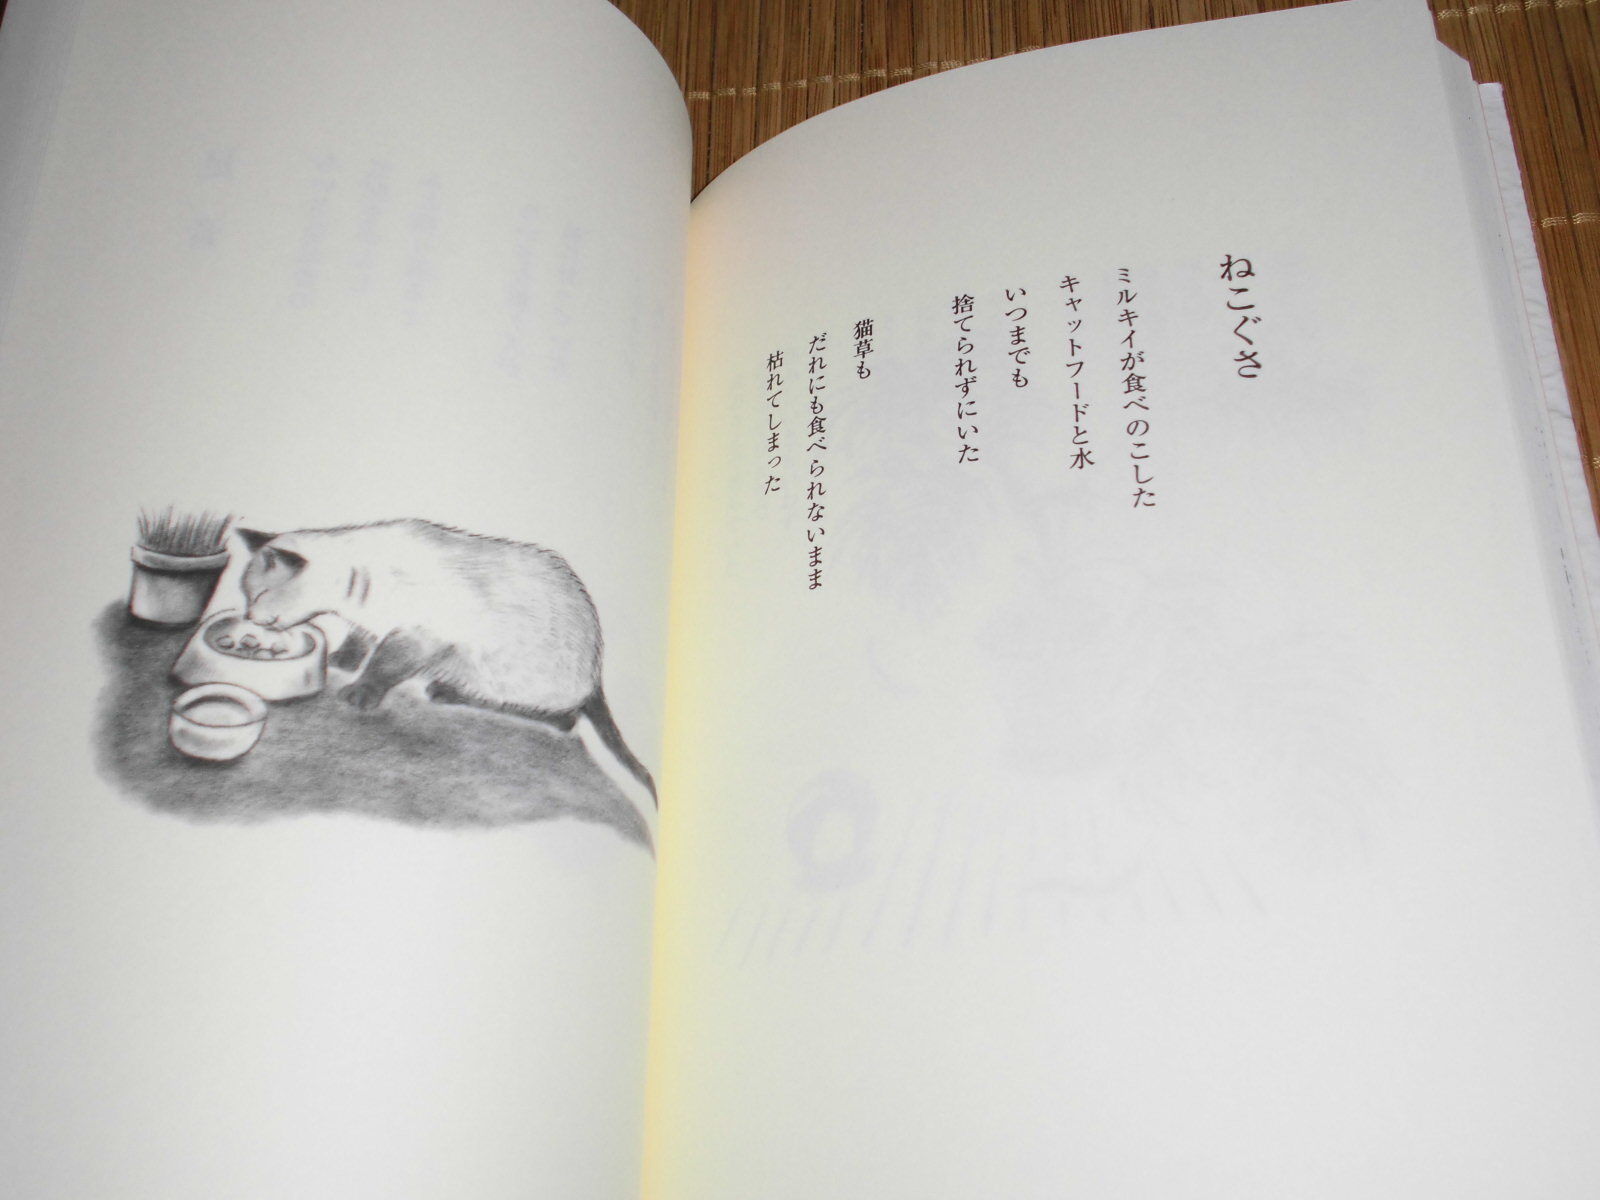 ねこぐさ
ミルキイが食べのこした
キャットフードと水
いつまでも
捨てられずにいた
猫草も
だれにも食べられないまま
枯れてしまった